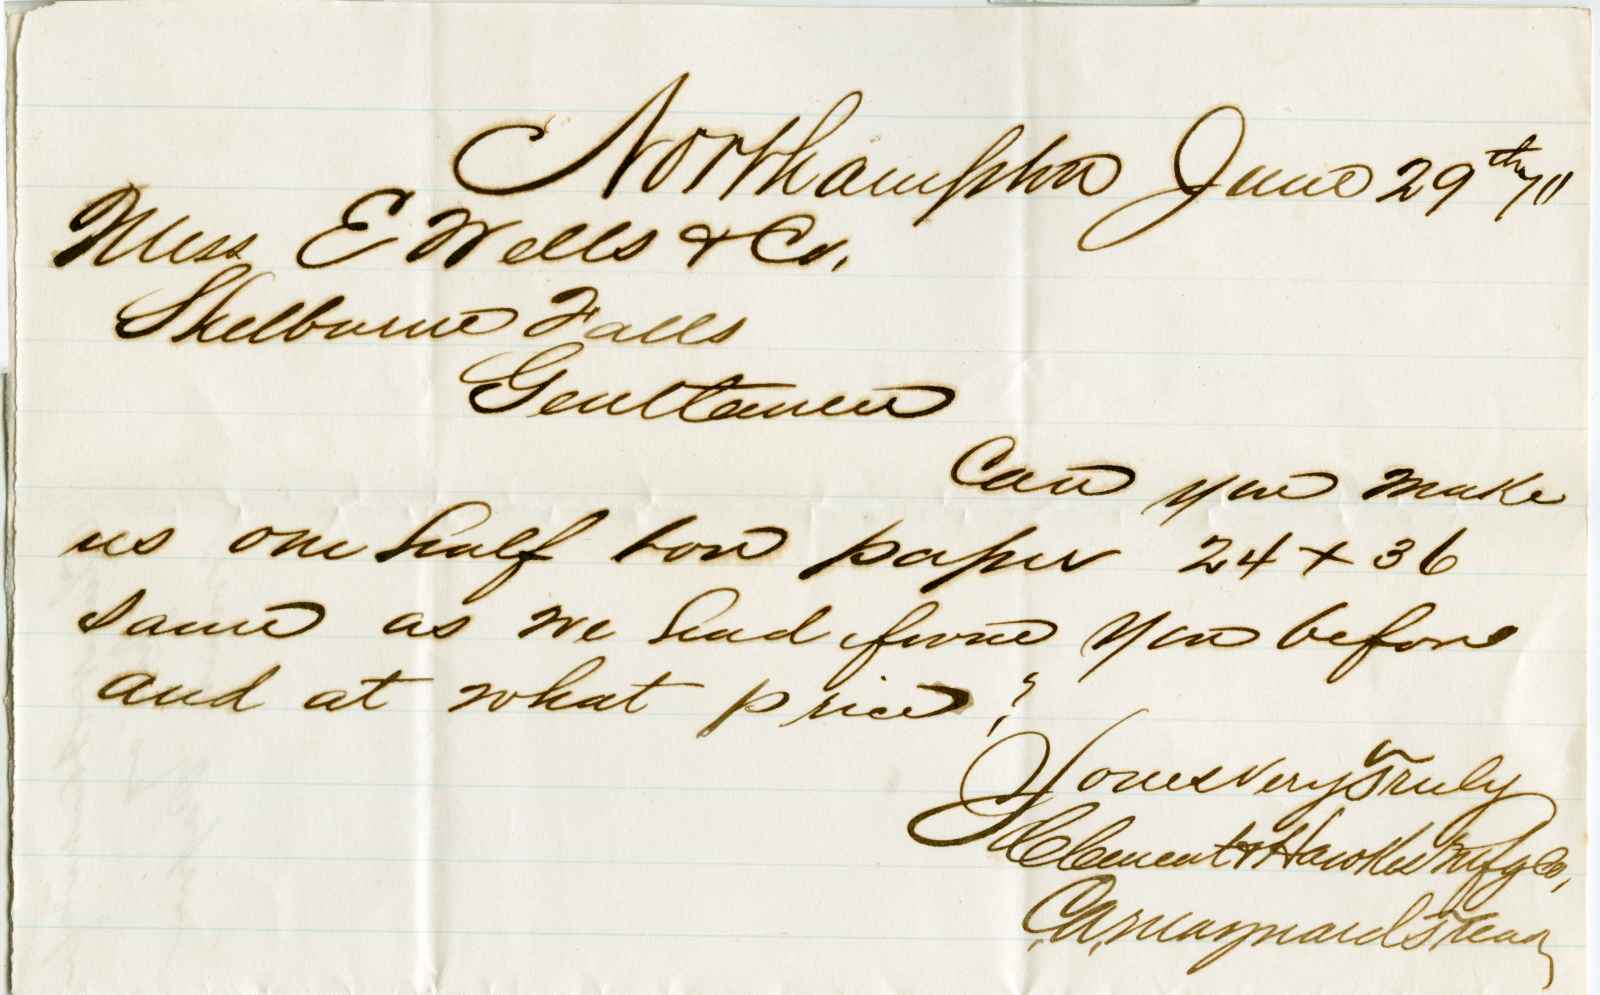 Northampton June 29th /71
Mess E Wells & Co.
Shelburne Falls
Gentlemen
Can you make
us one half ton paper 24 + 36
same as we had from you before
and at what price?
Yours Very Truly
Clement & Hawkes Mfg Co,
C.A. Maynard Treas